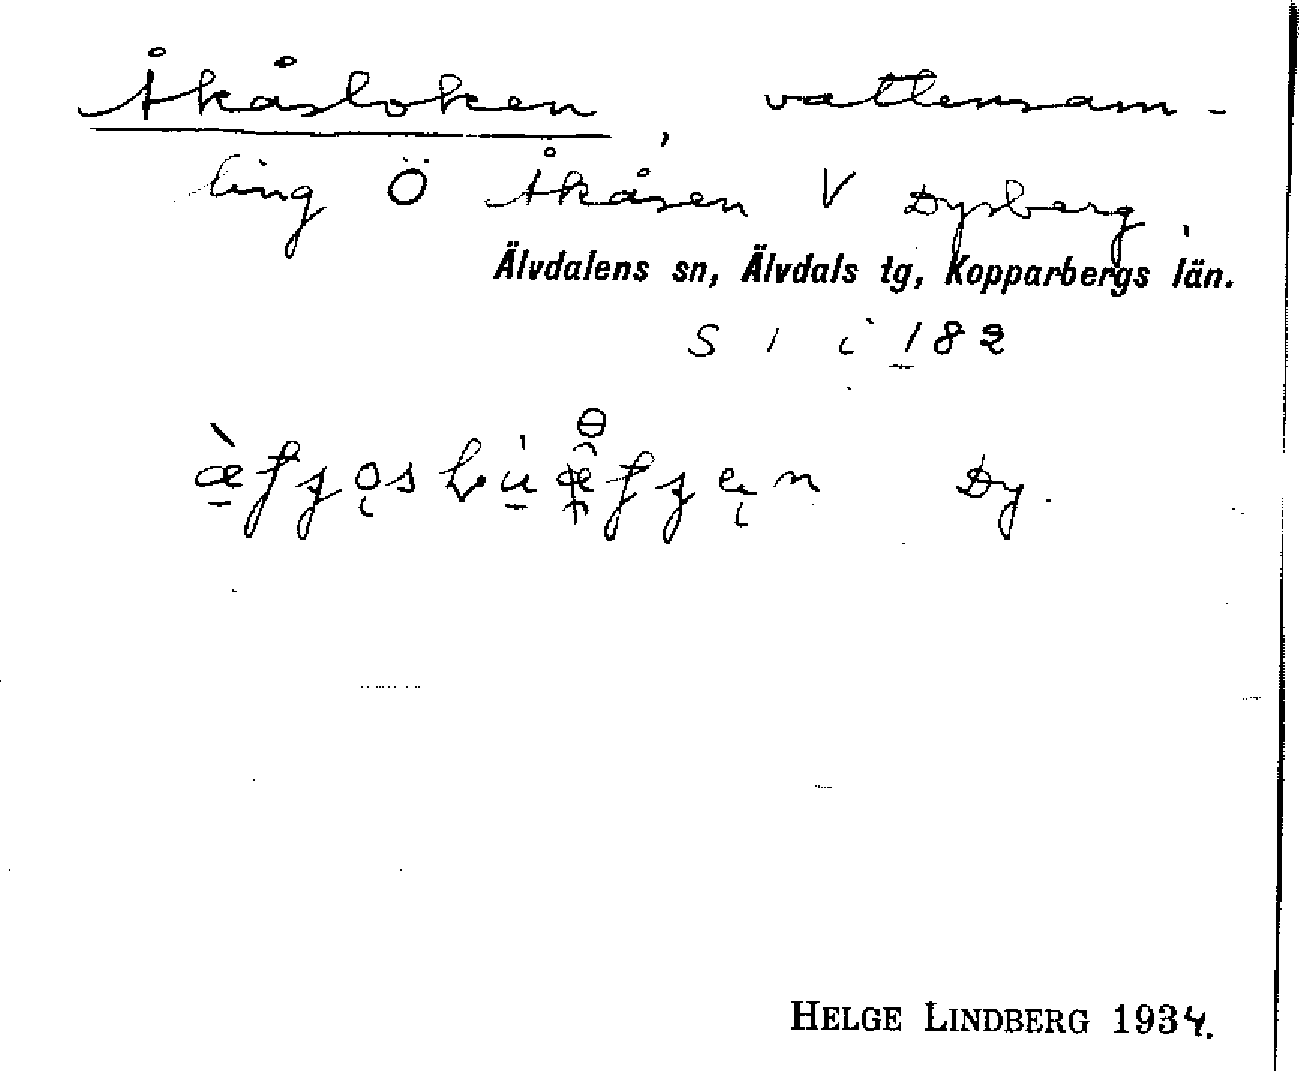 Åkåsloken, vattensam-
ling Ö Åkåsen V Dysberg,
Älvdalens sn, Älvdals tg, Kopparbergs län.
S 1 i 182
Dy.
HELGE LINDBERG 1934.